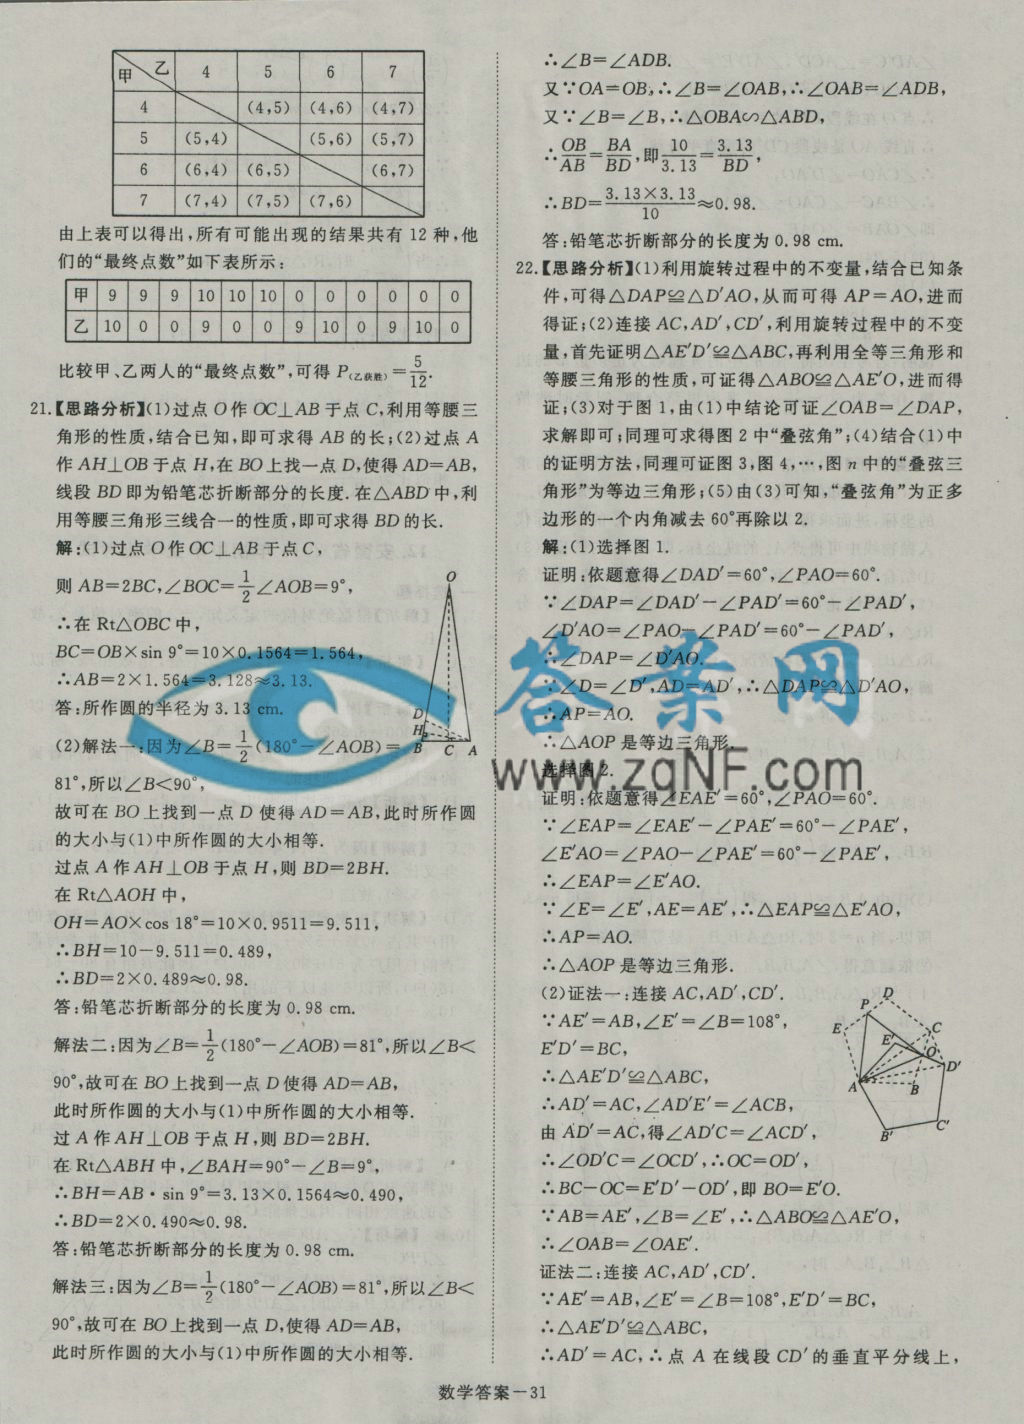 甲 乙 4 5 6 7
4 (4,5) (4,6) (4,7)
5 (5,4) (5,6) (5,7)
6 (6,4) (6,5) (6,7)
7 (7,4) (7,5) (7,6)
由上表可以得出,所有可能出现的结果共有 12 种,他
们的“最终点数”如下表所示:
甲 9 9 9 10 10 10 0 0 0 0 0 0
乙 10 0 0 9 0 0 9 10 0 9 10 0
比较甲、乙两人的“最终点数”,可得 P(乙获胜)=5/12.
21.【思路分析】(1)过点 O 作 OC⊥AB 于点 C,利用等腰三
角形的性质,结合已知,即可求得 AB 的长;(2)过点 A
作 AH⊥OB 于点 H,在 BO 上找一点 D,使得 AD=AB,
线段 BD 即为铅笔芯折断部分的长度.在△ABD 中,利
用等腰三角形三线合一的性质,即可求得 BD 的长.
解:(1)过点 O 作 OC⊥AB 于点 C,
则 AB=2BC,∠BOC=1/2∠AOB=9°,
∴在 Rt△OBC 中,
BC=OB×sin 9°=10×0.1564=1.564,
∴AB=2×1.564=3.128≈3.13.
答:所作圆的半径为 3.13 cm.
(2)解法一:因为∠B=1/2(180°-∠AOB)=
81°,所以∠B<90°,
故可在 BO 上找到一点 D 使得 AD=AB,此时所作圆
的大小与(1)中所作圆的大小相等.
过点 A 作 AH⊥OB 于点 H,则 BD=2BH.
在 Rt△AOH 中,
OH=AO×cos 18°=10×0.9511=9.511,
∴BH=10-9.511=0.489,
∴BD=2×0.489≈0.98.
答:铅笔芯折断部分的长度为 0.98 cm.
解法二:因为∠B=1/2(180°-∠AOB)=81°,所以∠B<
90°,故可在 BO 上找到一点 D 使得 AD=AB,
此时所作圆的大小与(1)中所作圆的大小相等.
过 A 作 AH⊥OB 于点 H,则 BD=2BH.
在 Rt△ABH 中,∠BAH=90°-∠B=9°,
∴BH=AB·sin 9°=3.13×0.1564≈0.490,
∴BD=2×0.490≈0.98.
答:铅笔芯折断部分的长度为 0.98 cm.
解法三:因为∠B=1/2(180°-∠AOB)=81°,所以∠B<
90°,故可在 BO 上找到一点 D,使得 AD=AB,
此时所作圆的大小与(1)中所作圆的大小相等.
O
D
H
B C A
∴∠B=∠ADB.
又∵OA=OB,∴∠B=∠OAB,∴∠OAB=∠ADB,
又∵∠B=∠B,∴△OBA∽△ABD,
∴OB/AB=BA/BD,即10/3.13=3.13/BD,
∴BD=3.13×3.13/10≈0.98.
答:铅笔芯折断部分的长度为 0.98 cm.
22.【思路分析】(1)利用旋转过程中的不变量,结合已知条
件,可得△DAP≌△D′AO,从而可得 AP=AO,进而
得证;(2)连接 AC,AD′,CD′,利用旋转过程中的不变
量,首先证明△AE′D′≌△ABC,再利用全等三角形和
等腰三角形的性质,可证得△ABO≌△AE′O,进而得
证;(3)对于图 1,由(1)中结论可证∠OAB=∠DAP,
求解即可;同理可求得图 2 中“叠弦角”;(4)结合(1)中
的证明方法,同理可证图 3,图 4,…,图 n 中的“叠弦三
角形”为等边三角形;(5)由(3)可知,“叠弦角”为正多
边形的一个内角减去 60°再除以 2.
解:(1)选择图 1.
证明:依题意得∠DAD′=60°,∠PAO=60°.
∵∠DAP=∠DAD′-∠PAD′=60°-∠PAD′,
∠D′AO=∠PAO-∠PAD′=60°-∠PAD′,
∴∠DAP=∠D′AO.
∵∠D=∠D′,AD=AD′,∴△DAP≌△D′AO,
∴AP=AO.
∴△AOP 是等边三角形.
选择图 2.
证明:依题意得∠EAE′=60°,∠PAO=60°.
∵∠EAP=∠EAE′-∠PAE′=60°-∠PAE′,
∠E′AO=∠PAO-∠PAE′=60°-∠PAE′,
∴∠EAP=∠E′AO.
∵∠E=∠E′,AE=AE′,∴△EAP≌△E′AO,
∴AP=AO.
∴△AOP 是等边三角形.
(2)证法一:连接 AC,AD′,CD′.
∵AE′=AB,∠E′=∠B=108°,
E′D′=BC,
∴△AE′D′≌△ABC,
∴AD′=AC,∠AD′E′=∠ACB,
由 AD′=AC,得∠AD′C=∠ACD′,
∴∠OD′C=∠OCD′,∴OC=OD′,
∴BC-OC=E′D′-OD′,即 BO=E′O.
∵AB=AE′,∠B=∠E′,∴△ABO≌△AE′O,
∴∠OAB=∠OAE′.
证法二:连接 AC,AD′,CD′.
∵AE′=AB,∠E′=∠B=108°,E′D′=BC,
∴△AE′D′≌△ABC,
∴AD′=AC,∴点 A 在线段 CD′的垂直平分线上,
P D
E C
E′
O
D′
A B
B′ C′
答案网
www.zqNF.com
数学答案—31